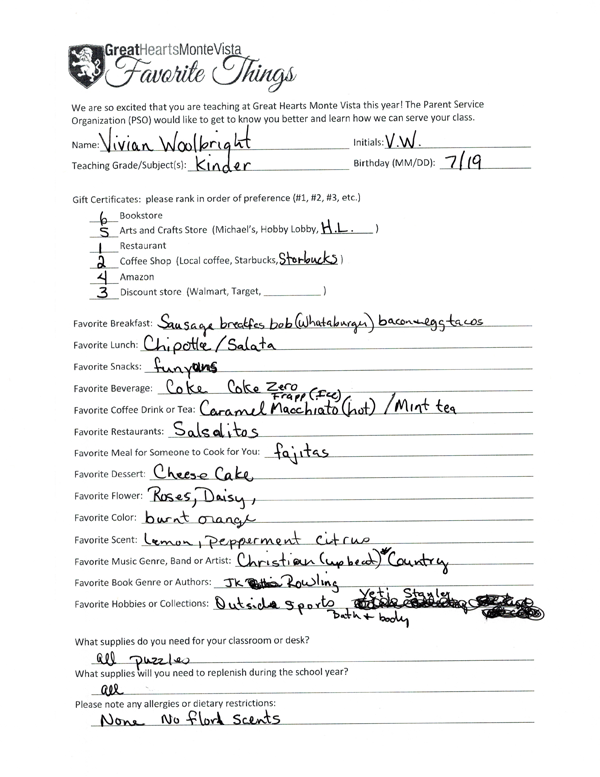 GreatHeartsMonteVista
Favorite Things
We are so excited that you are teaching at Great Hearts Monte Vista this year! The Parent Service
Organization (PSO) would like to get to know you better and learn how we can serve your class.
Name: Vivian Woolbright Initials: V.W.
Teaching Grade/Subject(s): Kinder Birthday (MM/DD): 7/19
Gift Certificates: please rank in order of preference (#1, #2, #3, etc.)
6 Bookstore
5 Arts and Crafts Store (Michael's, Hobby Lobby, H.L. )
1 Restaurant
2 Coffee Shop (Local coffee, Starbucks, Starbucks )
4 Amazon
3 Discount store (Walmart, Target, __________ )
Favorite Breakfast: Sausage breakfes bob (Whataburger) bacon+egg tacos
Favorite Lunch: Chipotle / Salata
Favorite Snacks: funyuns
Favorite Beverage: Coke Coke Zero
Frapp (Ice)
Favorite Coffee Drink or Tea: Caramel Macchiato (hot) / Mint tea
Favorite Restaurants: Salsalitos
Favorite Meal for Someone to Cook for You: fajitas
Favorite Dessert: Cheese Cake
Favorite Flower: Roses, Daisy,
Favorite Color: burnt orange
Favorite Scent: Lemon, pepperment citrus
Favorite Music Genre, Band or Artist: Christian (upbeat) Country
Favorite Book Genre or Authors: JK Rowling
Favorite Hobbies or Collections: Outside sports Yeti Stanley
bath + body
What supplies do you need for your classroom or desk?
all puzzles
What supplies will you need to replenish during the school year?
all
Please note any allergies or dietary restrictions:
None No florl scents